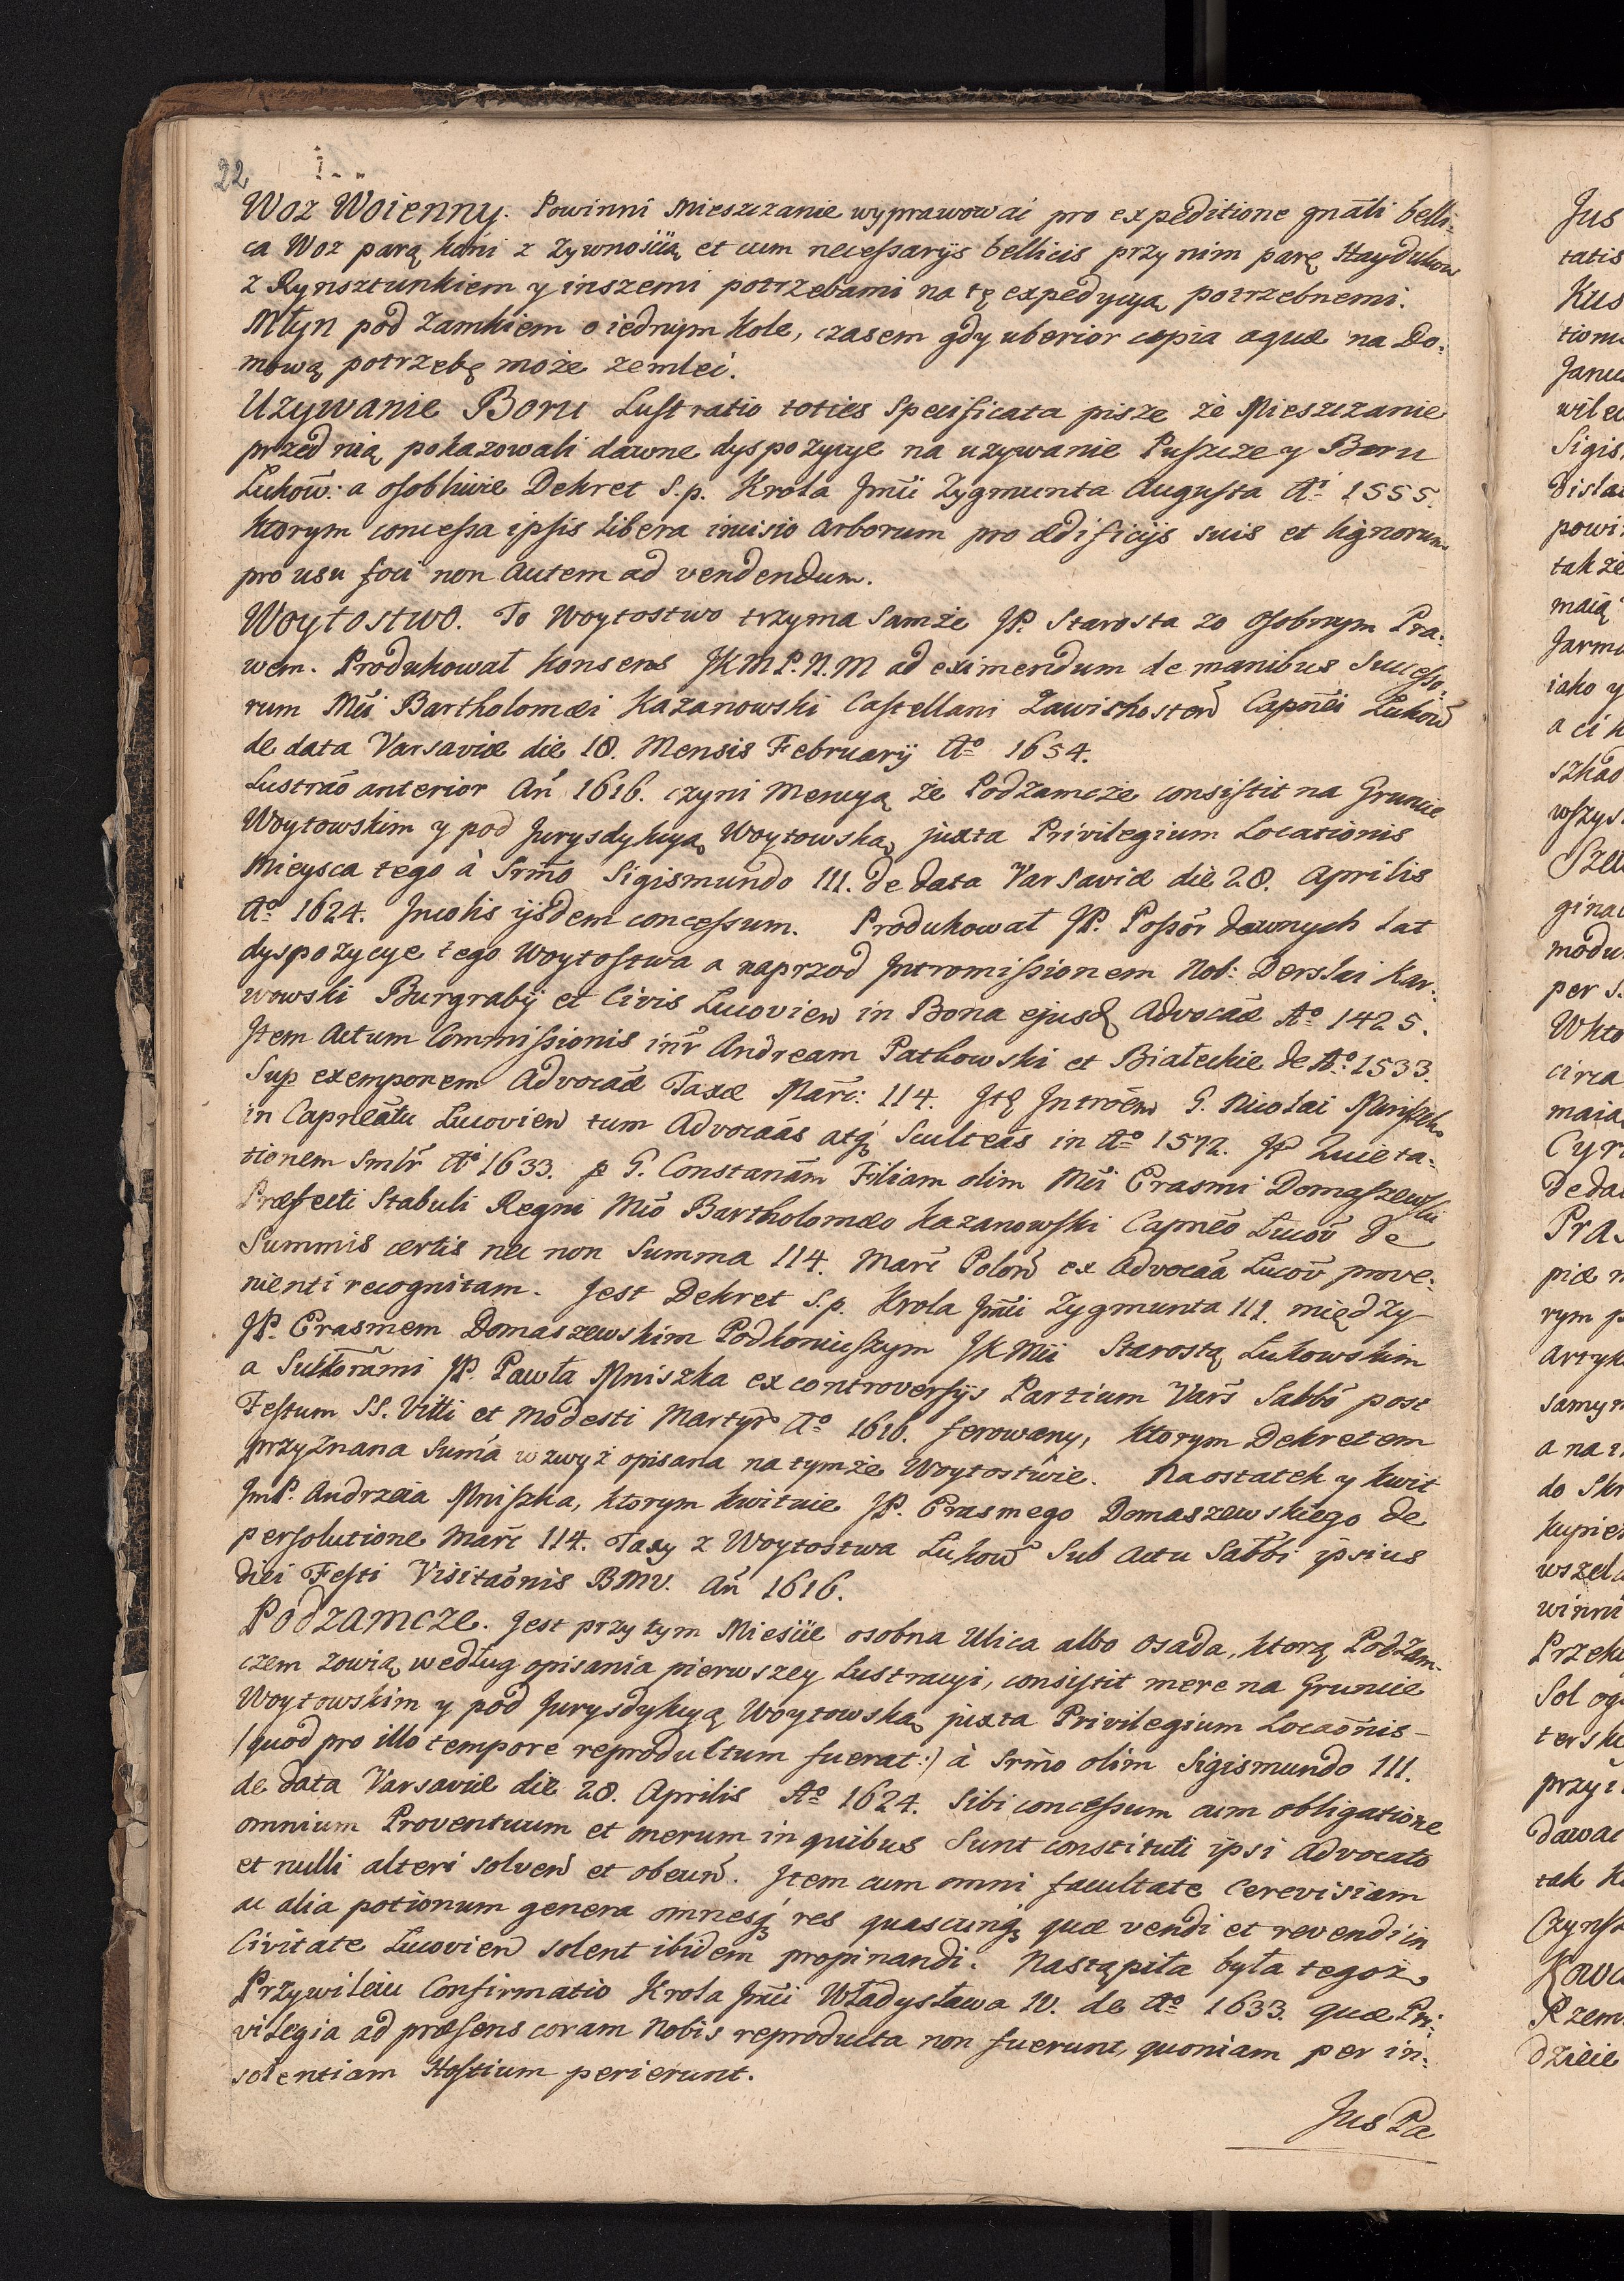 22
Woz Woienny. Powinni Mieszczanie wyprawować pro expeditione gnãli belli-
ca Woz parą koni z Zywnością, et cum necessarijs bellicis przy nim parę Haydukow
z Rynsztunkiem y inszemi potrzebami na tę expedycyą potrzebnemi.
Młyn pod Zamkiem o iednym Kole, czasem gdy uberior copia aquæ na Do-
mową potrzebę może zemleć.
Uzywanie Boru Lustratio toties Specificata pisze że Mieszczanie
przed nią pokazowali dawne dyspozycye na uzywanie Puszcze y Boru
Lukow: a osobliwie Dekret S.p. Krola Jmći Zygmunta Augusta Aº 1555.
ktorym concessa ipsis Libera incisio Arborum pro ædificijs suis et lignorum
pro usu foci non Autem ad vendendum.
Woytostwo. To Woytostwo trzyma Samże JP. Starosta za Osobnym Pra-
wem. Produkował Konsens JKMP.N.M ad eximendum de manibus Successo-
rum Mći Bartholomæi Kazanowski Castellani Zawichosteñ Capñei Lukow
de data Varsaviæ die 18. Mensis February Aº 1654.
Lustraõ anterior Añ 1616. czyni Mencyą że Podzamcze consistit na Gruncie
Woytowskim y pod Jurysdykcyą Woytowską, juxta Privilegium Locationis
Mieysca tego à Srm̃o Sigismundo III. de data Varsaviæ die 28. Aprilis
Aº 1624. Jncolis ijsdem concessum. Produkował JP. Possõr dawnych Lat
dyspozycye tego Woytostwa a naprzod Jntromissionem Nob: Derslai Kar-
wowski Burgrabij et Civis Lucovieñ in Bona ejusd Advocaæ Aº 1425.
Jtem Actum Commissionis inr̃ Andream Patkowski et Białeckie de Aº 1533.
Sup exemponem Advocaæ Taxæ Marc̃: 114. Jtę Jntroẽm G. Nicolai Mniszek
in Capneãtu Lucovieñ tum Advocaãs atq́ Sculteãs in Aº 1572. Jt̃ Quieta-
tionem Smlr̃ Aº 1633. p G. Constanãm Filiam olim Mći Erasmi Domaszewski
Præfecti Stabuli Regni Mćo Bartholomæo Kazanowski Capneõ Lucov̄ de
Summis certis nec non Summa 114. Marc̃ Poloñ ex Advocaã Lucov̄ prove-
nienti recognitam. Jest Dekret S.p. Krola Jmći Zygmunta III. między
JP. Erasmem Domaszewskim Podkoniuszym JKMći Starostą Lukowskim
a Sukorãmi JP. Pawła Mniszka ex controversijs Partium Vars̃ Sabbõ post
Festum SS. Vitti et Modesti Martyr̃ Aº 1616. ferowany, ktorym Dekretem
przyznana Summa wzwyż opisana na tymże Woytostwie. Naostatek y kwit
JmP. Andrzeia Mniszka, ktorym kwituie JP. Erasmego Domaszewskiego de
persolutione Marc̃ 114. Taxy z Woytostwa Lukow̃ Sub Actu Sabbi ipsius
diei Festi Visitaõnis BMV. Añ 1616.
Podzamcze. Jest przy tym Mieście osobna Ulica albo Osada, ktorą Podzam-
czem zowią, według opisania pierwszey Lustracyi, consistit mere na Gruncie
Woytowskim y pod Jurysdykcyą Woytowską, juxta Privilegium Locaõnis
/quod pro illo tempore reproductum fuerat:/ à Srm̃o olim Sigismundo III.
de data Varsaviæ die 28. Aprilis Aº 1624. Sibi concessum cum obligatione
omnium Proventuum et onerum in quibus Sunt constituti ipsi Advocato
et nulli alteri solveñ et obeuñ. Jtem cum omni facultate Cerevisiam
ac alia potionum genera omnesq́ res quascunq́ quæ vendi et revendi in
Civitate Lucovieñ solent ibidem propinandi. Nastąpiła była tegoż
Przywileiu Confirmatio Krola Jmći Władysława IV. de Aº 1633. quæ Pri-
vilegia ad præsens coram Nobis reproducta non fuerunt, quoniam per in-
solentiam Hostium perierunt.
Jus Pa